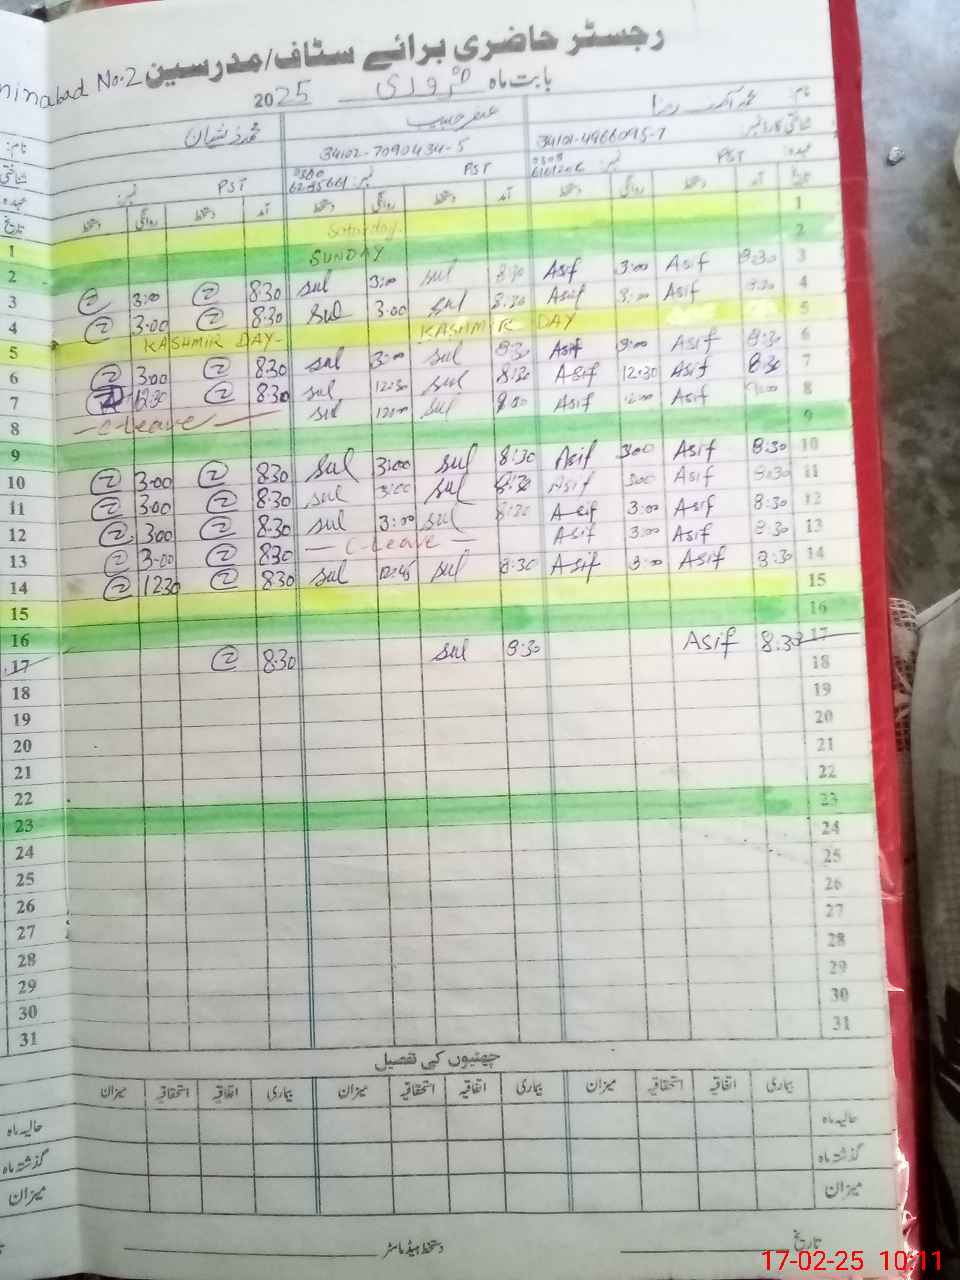 رجسٹر حاضری برائے سٹاف/مدرسین
minabad No.2
بابت ماہ فروری 2025
نام: محمد آصف رضا عنصر حبیب محمد ذیشان نام:
شناختی کارڈ نمبر: 34101-4966095-7 34102-7090434-5 شناختی
عہدہ: PST نمبر: PST نمبر: PST نمبر: عہدہ
تاریخ آمد دستخط روانگی دستخط آمد دستخط روانگی دستخط آمد دستخط روانگی دستخط تاریخ
1 Saturday 1
2 SUNDAY 2
3 8:30 Asif 3:00 Asif 8:30 sul 3:00 sul 8.30 3:00 3
4 8:30 Asif 3:00 Asif 8:30 sul 3.00 sul 8.30 3.00 4
5 KASHMIR DAY KASHMIR DAY- 5
6 8:30 Asif 3:00 Asif 8:30 sul 3:00 sul 8.30 3.00 6
7 8:30 Asif 12.30 Asif 8:30 sul 12:30 sul 8.30 12.30 7
8 Asif Asif sul sul C-Leave 8
9 9
10 8:30 Asif 3:00 Asif 8:30 sul 3:00 sul 8.30 3.00 10
11 8:30 Asif 3:00 Asif 8:30 sul 3:00 sul 8.30 3.00 11
12 8:30 Asif 3:00 Asif 8:30 sul 3:00 sul 8.30 300 12
13 8:30 Asif 3:00 Asif C-Leave 8.30 3.00 13
14 8:30 Asif Asif 8:30 sul 12:45 sul 8.30 1230 14
15 15
16 16
17 8:30 Asif 8:30 sul 8.30 17
18 18
19 19
20 20
21 21
22 22
23 23
24 24
25 25
26 26
27 27
28 28
29 29
30 30
31 31
چھٹیوں کی تفصیل
بیماری اتفاقیہ استحقاقیہ میزان بیماری اتفاقیہ استحقاقیہ میزان بیماری اتفاقیہ استحقاقیہ میزان
حالیہ ماہ حالیہ ماہ
گذشتہ ماہ گذشتہ ماہ
میزان میزان
تاریخ دستخط ہیڈ ماسٹر
17-02-25 10:11